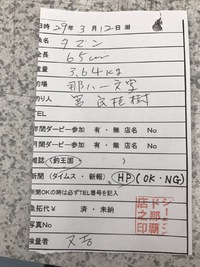 日時 29年 3月 12日
魚名 タマン
全長 65cm
重量 3.64kg
釣場 那八一文字
釣り人
TEL
年間ダービー参加 有・無 店名 No
月間ダービー参加 有・無 店名 No
雑誌 (釣王国)
新聞 (タイムス・新報) HP (OK・NG)
新聞OKの時は必ずTEL番号を記入
魚拓代 ¥ 済・未納
写真No
検量者 又吉
シーランド那覇店之印